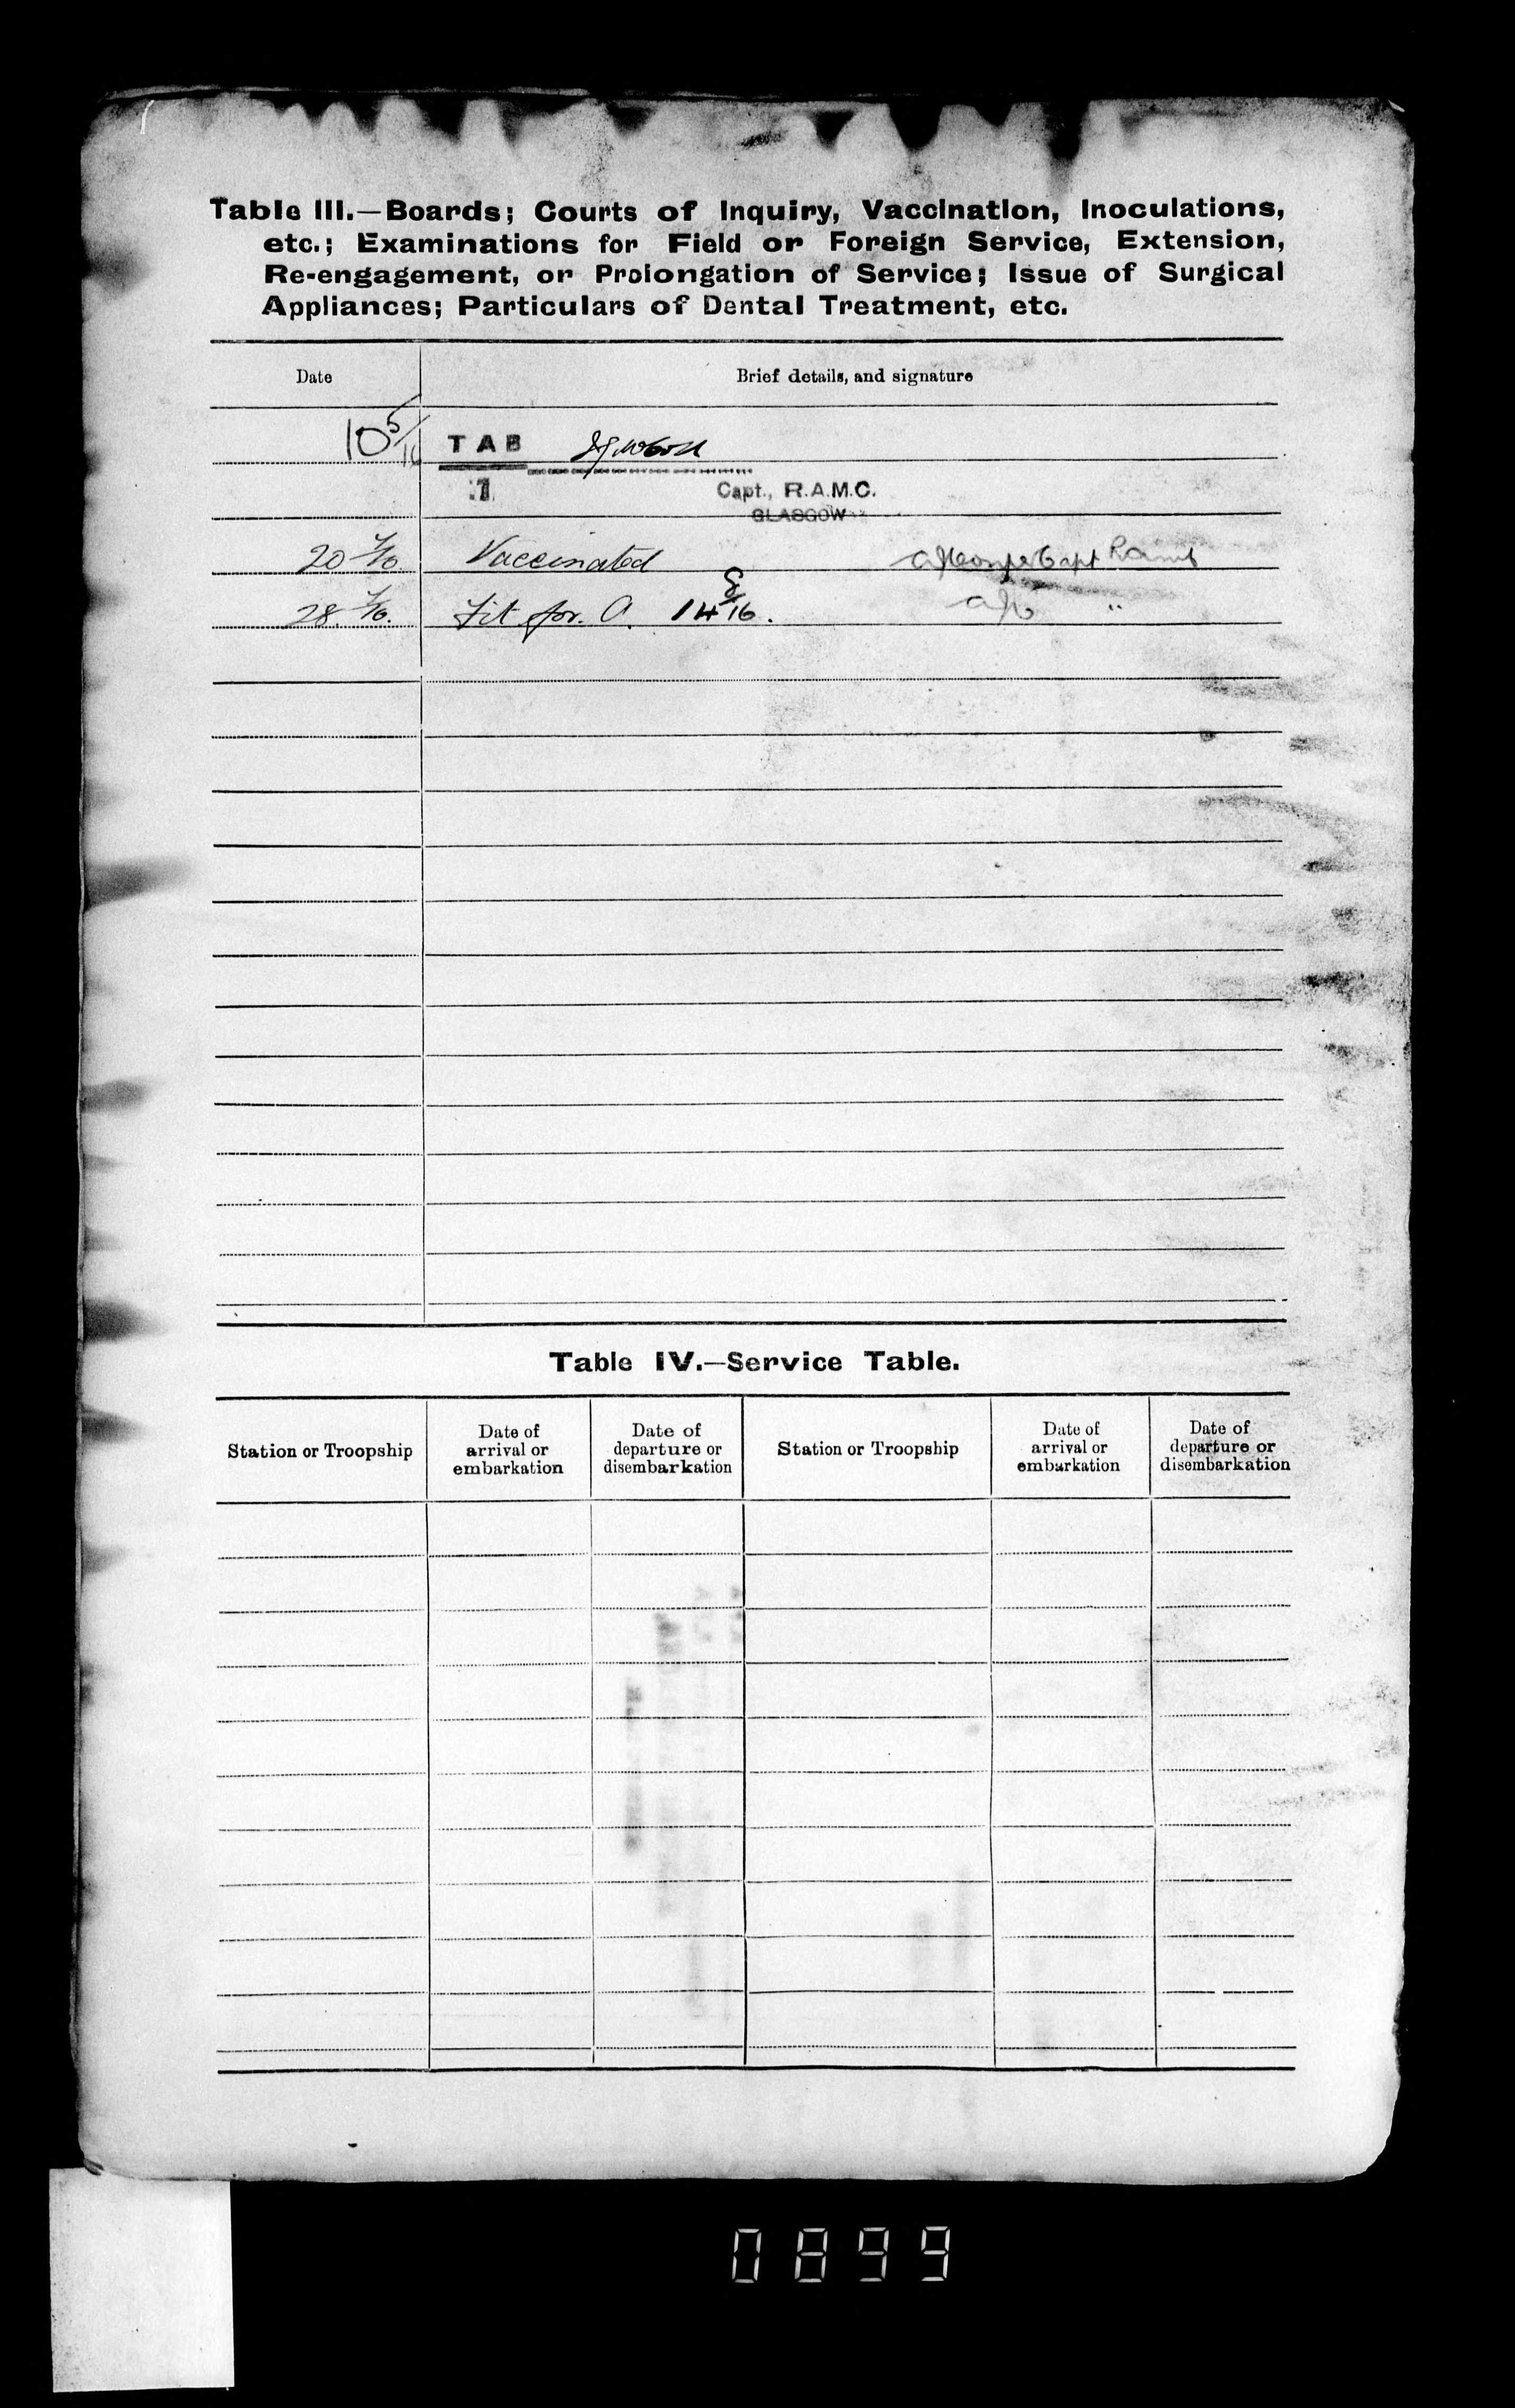 Table III.—Boards; Courts of Inquiry, Vaccination, Inoculations,
etc.; Examinations for Field or Foreign Service, Extension,
Re-engagement, or Prolongation of Service; Issue of Surgical
Appliances; Particulars of Dental Treatment, etc.
Date Brief details, and signature
10 5/16 TAB
1 Capt., R.A.M.C.
GLASGOW
20 7/16 Vaccinated Capt RAMC
28. 7/16. Fit for. A. 14 8/16. "
Table IV.—Service Table.
Station or Troopship Date of arrival or embarkation Date of departure or disembarkation Station or Troopship Date of arrival or embarkation Date of departure or disembarkation
0899